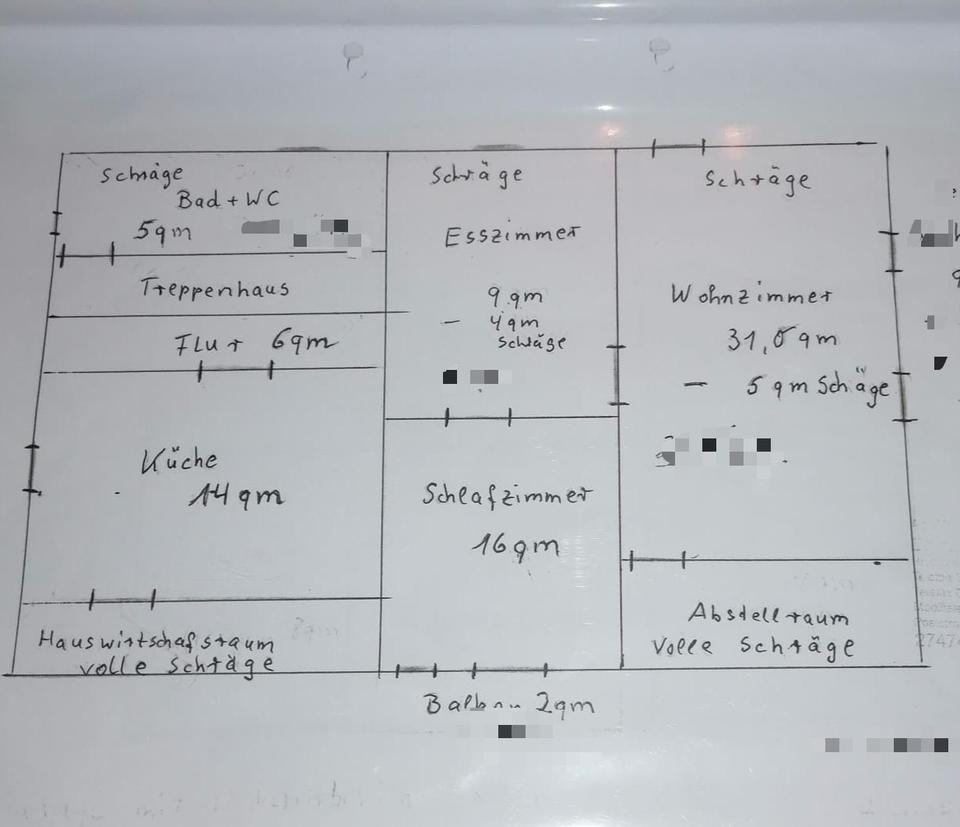 Schräge
Bad + WC
5qm
Treppenhaus
Flur 6qm
Küche
14 qm
Hauswirtschafstraum
volle Schräge
Schräge
Esszimmer
9 qm
- 4qm
Schräge
Schlafzimmer
16 qm
Balkon 2qm
Schräge
Wohnzimmer
qm
- 5 qm Schäge
Abstellraum
Volle Schräge